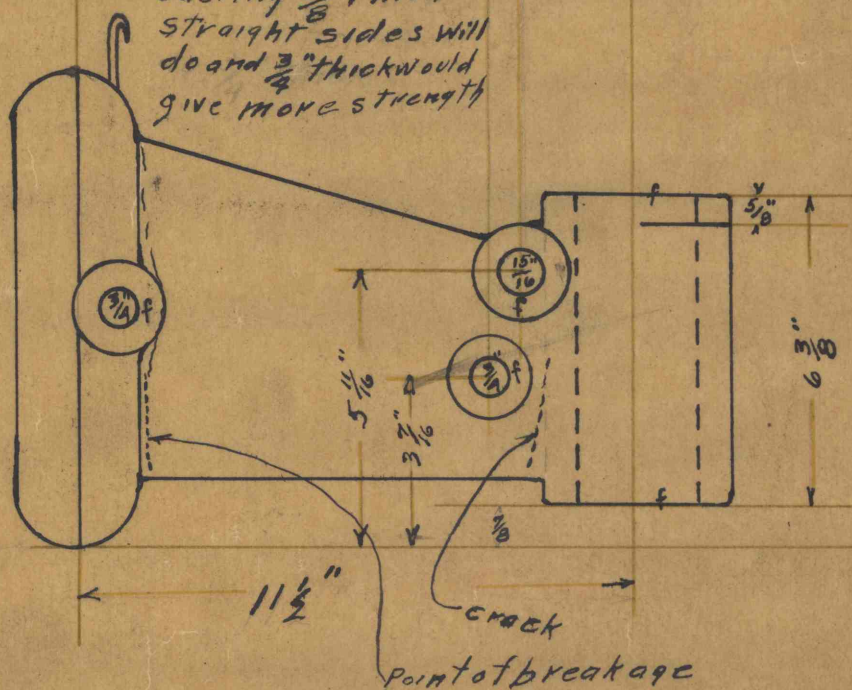 straight sides will
do and 3/4" thick would
give more strength
5/8"
15"/16
f
3/4" f
f
3/4
f
5 11/16"
3 7/16"
6 3/8"
7/8
f
11 1/2"
crack
Point of breakage